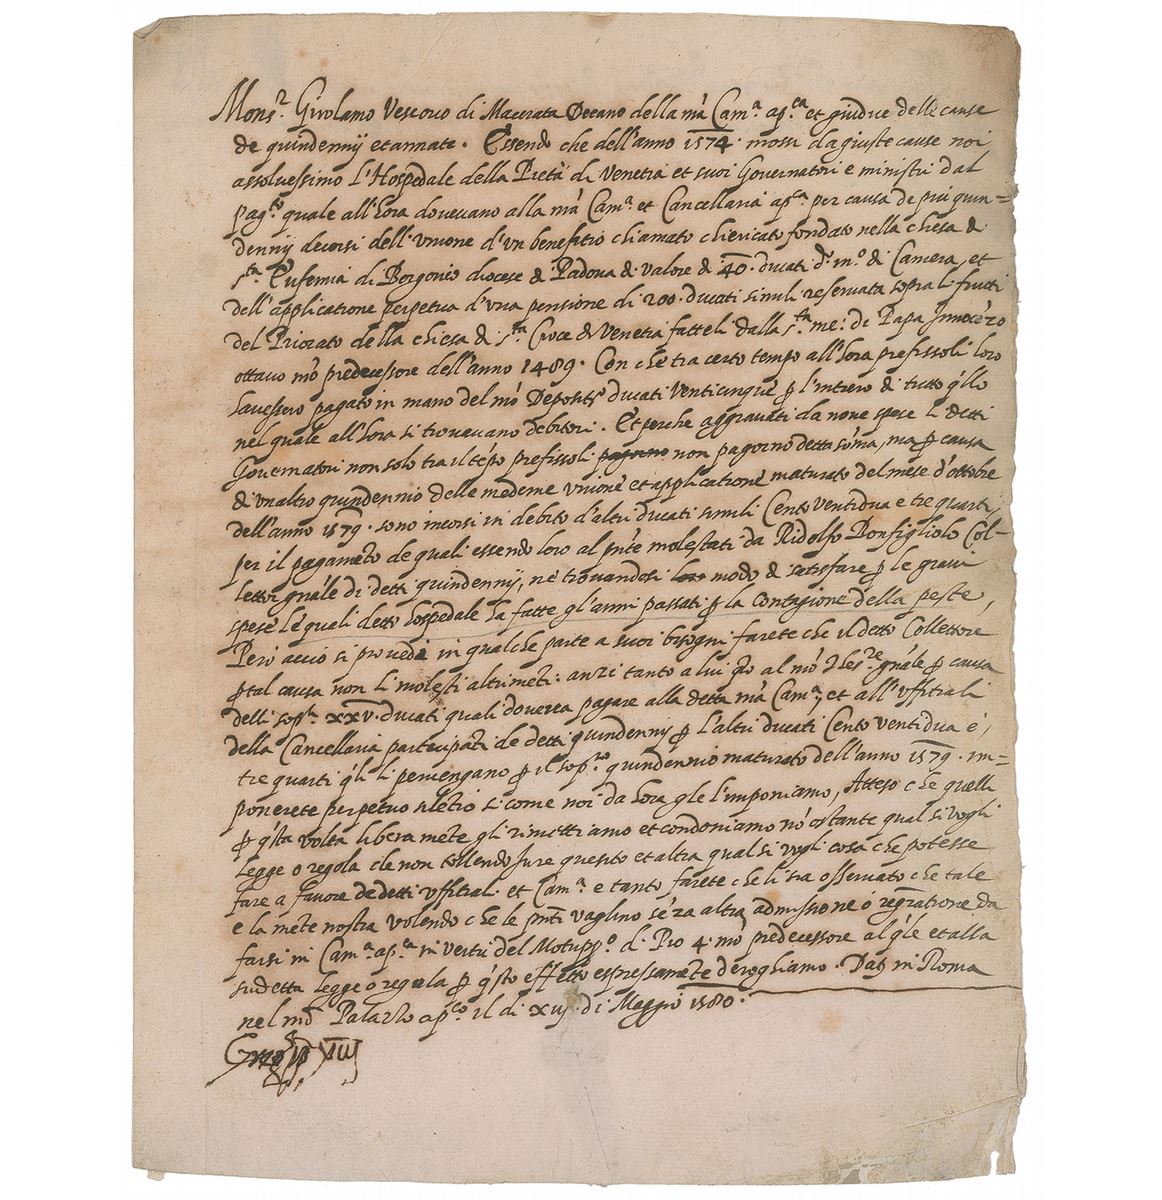 Mons.r Girolamo Vescovo di Macerata Decano della nrã Cam.a ap.ca et giudice delle cause
de quindennij et annate. Essendo che dell'anno 1574. mossi da giuste cause noi
assolvessimo l'Hospedale della Pietà di Venetia et suoi Governatori e ministri dal
pag.to quale all'hora dovevano alla nrã Cam.a et Cancellaria ap.ca per causa de piu quin=
dennij decorsi dell'unione d'un benefitio chiamato chiericato fondato nella chiesa di
s.ta Eufemia di Borgonio diocese di Padova di valore di 40. ducati d. m.o di Camera, et
dell'applicatione perpetua d'una pensione di 200. ducati simili reservata sopra li frutti
del Priorato della chiesa di s.ta Croce di Venetia fatteli dalla s.ta me: di Papa Innocẽzo
ottavo nrõ predecessore dell'anno 1489. Con che tra certo tempo all'hora prefissoli loro
havessero pagato in mano del nrõ Deposit.rio ducati venticinque p l'intiero di tutto q̃llo
nel quale all'hora si trovavano debitori. Et perche aggravati da nove spese li detti
Governatori non solo tra il tẽpo prefissoli pagorno non pagorno detta sõma, ma p causa
di un altro quindennio delle medeme unione et applicatione maturato del mese d'ottobre
dell'anno 1579. sono incorsi in debito d'altri ducati simili Cento ventidua e tre quarti,
per il pagamẽto de quali essendo loro al pñte molestati da Ridolfo Bonfigliolo Col-
lettor gñale di detti quindennij, ne trovandosi loro modo di satisfare p le gravi
spese le quali detto hospedale ha fatte gl'anni passati p la contagione della peste,
Però acciò si proveda in qualche parte a suoi bisogni farete che il detto Collettore
p tal causa non li molesti altrimẽti: anzi tanto a lui q̃to al nrõ Thes.re gñale p causa
delli sop.ti xxv. ducati quali doverra pagare alla detta nrã Cam.a, et all'uffitiali
della Cancellaria participãti de detti quindennij p l'altri ducati Cento ventidua e,
tre quarti q̃li li pervengano p il sop.to quindennio maturato dell'anno 1579. im=
ponerete perpetuo siletio si come noi da hora gle l'imponiamo, Atteso che quelli
p q̃sta volta liberamẽte gli rimettiamo et condoniamo nõ ostante qual si vogli
legge o regola de non tollendo jure quesito et altra qual si vogli cosa che potesse
fare a favore de detti uffitiali et Cam.a e tanto farete che li sia osservato che tale
e la mẽte nostra volendo che le pñti vaglino sẽza altra admissione ò regr̃atione da
farsi in Cam.a ap.ca in vertù del Motupp.o di Pio 4. nrõ predecessore al q̃le et alla
sudetta legge o regola p q̃sto effetto espressamẽte deroghiamo. Dat. in Roma
nel nrõ Palazzo ap.co il dì xvij. di Maggio 1580.
Greg. pp XIII